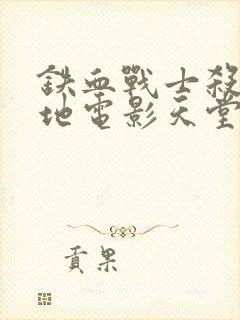 鉄血戰士殺
地電影天堂
貢果